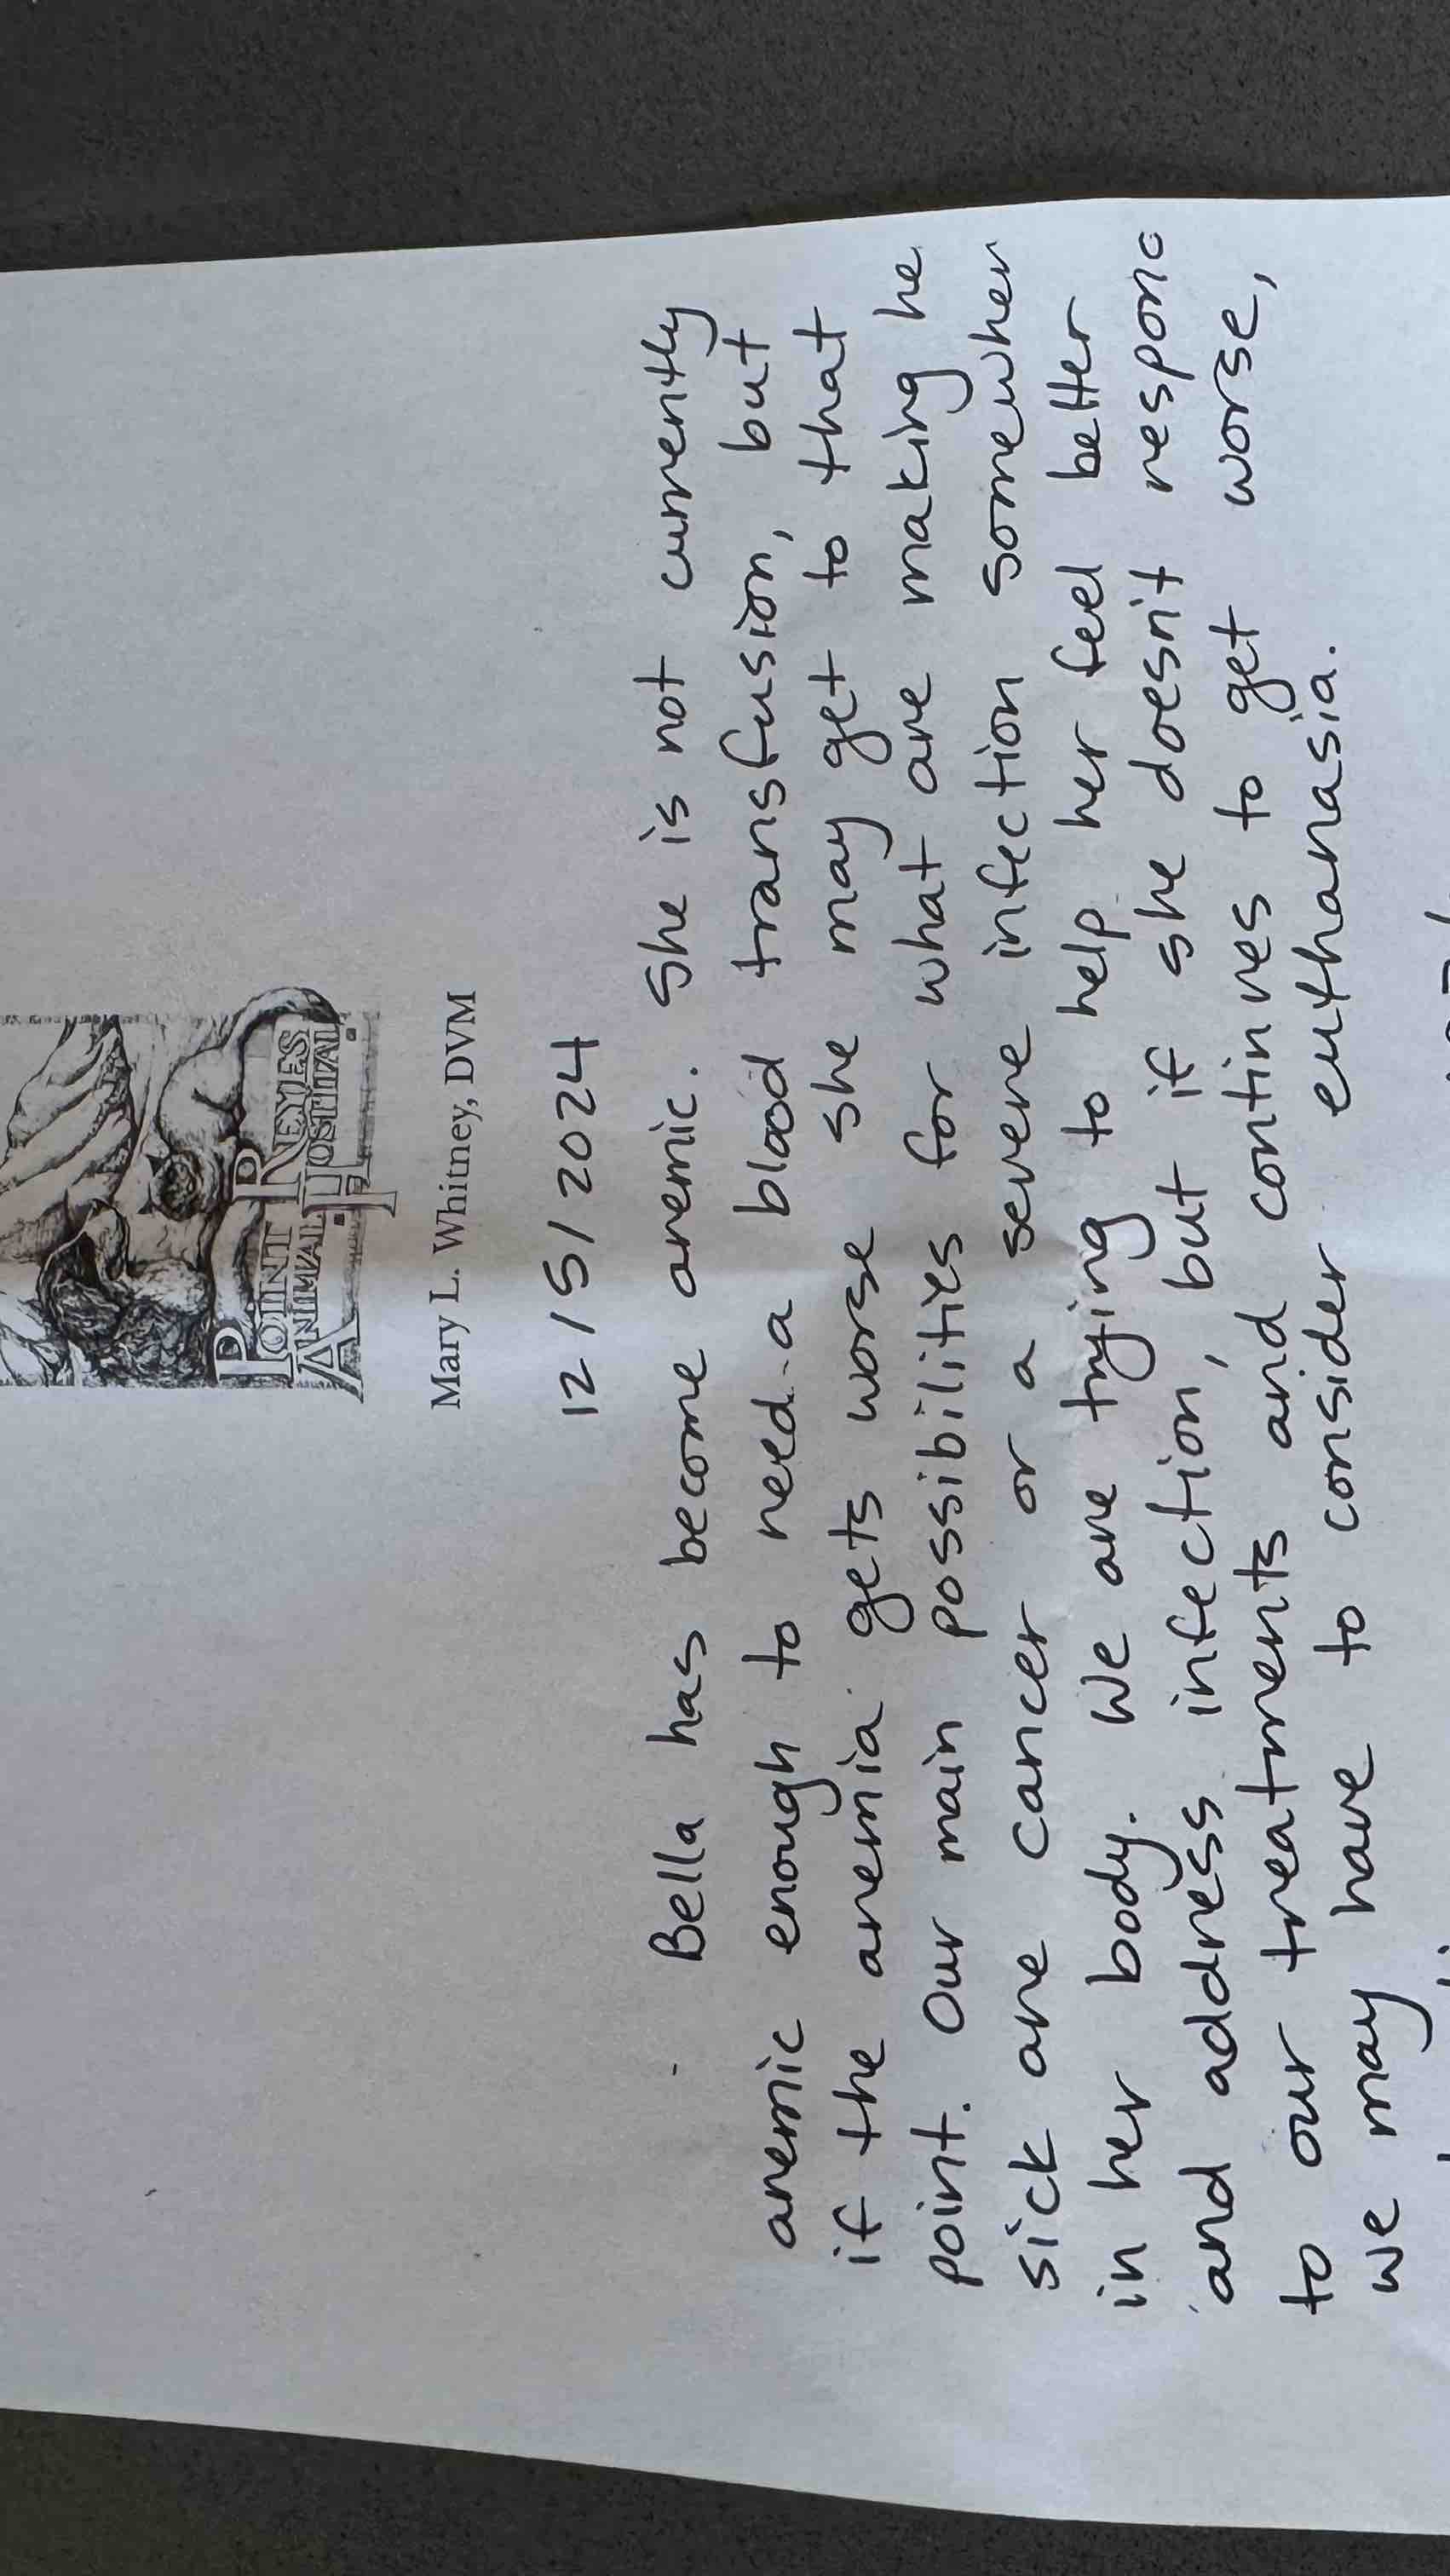 POINT REYES
ANIMAL HOSPITAL
Mary L. Whitney, DVM
12/5/2024
Bella has become anemic. She is not currently
anemic enough to need a blood transfusion, but
if the anemia gets worse she may get to that
point. Our main possibilities for what are making he
sick are cancer or a severe infection somewher
in her body. We are trying to help her feel better
and address infection, but if she doesn't respond
to our treatments and continues to get worse,
we may have to consider euthanasia.